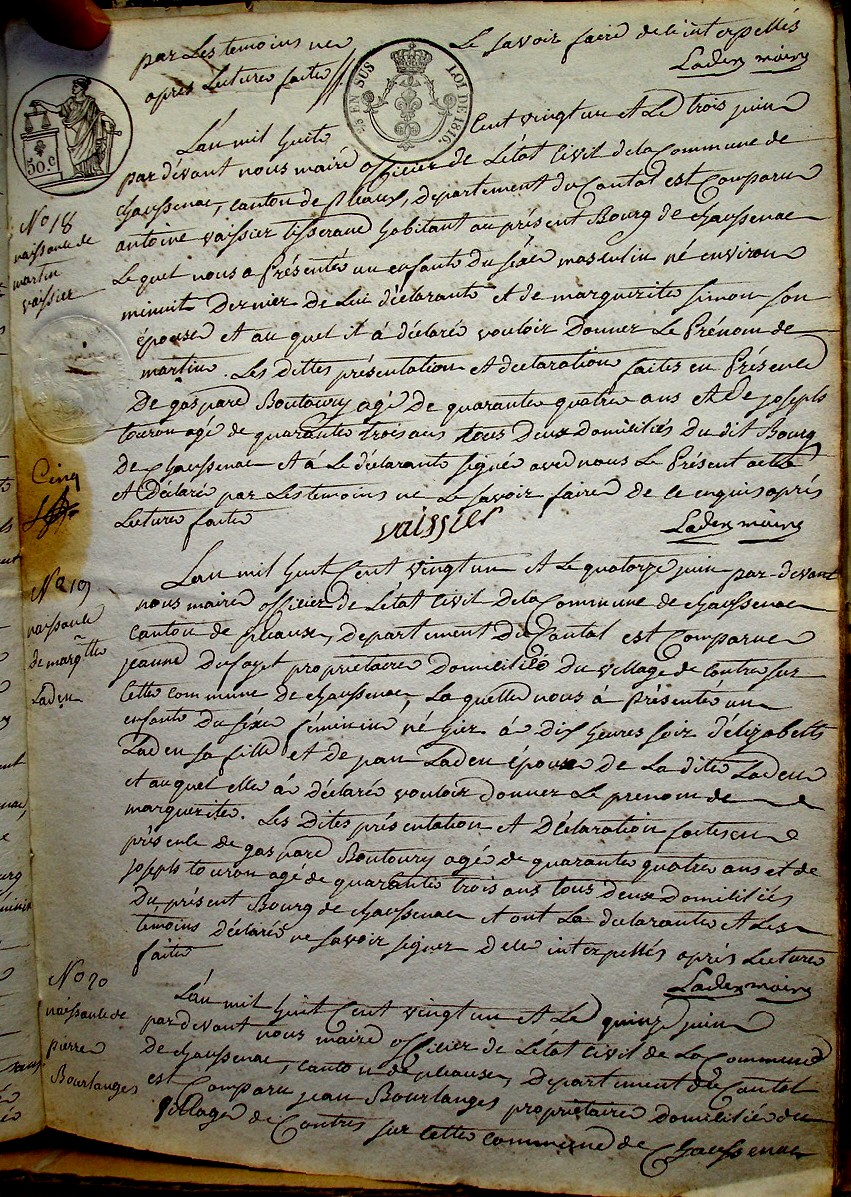 par Les temoins ne Le savoir faire de ce interpellés
après Lecture faite Laden maire
25 EN SUS
LOI DE 1816.
50.c
Lan mil huit Cent vingt un et Le trois juin
par dévant nous maire officier de Létat Civil de la Commune de
chaussenac, canton de pleaux, departement du Cantal est Comparu
antoine vaissier tisserand habitant au présent Bourg de chaussenac
Le quel nous a Présenté un enfant du séxe masculin né environ
minuit Dernier de Lui déclarant et de marguerite simon son
épouse et au quel il á déclaré vouloir Donner Le Prénom de
martin. Les Dittes présentation et declaration faites en Présence
De gaspard Boutoury agé De quarante quatre ans et de joseph
touron agé de quarante trois ans tous Deux Domiciliés Du dit Bourg
De chaussenac et á Le déclarant signé avec nous Le Présent acte
et Déclaré par Les temoins ne Le savoir faire De ce enquis après
Lecture faite vaissier Laden maire
No 18
naissance de
martin
vaissier
Cinq
Lan mil huit Cent vingt un et Le quatorze juin par devant
nous maire officier de Létat Civil De la Commune de chaussenac
Canton de pleause, Departement Du Cantal est Comparue
jeanne Dufayt propriétaire Domicilié Du village de Contre sur
Cette commune de chaussenac, La quelle nous á Présenté un
enfant Du séxe féminin né hier á Dix heures soir d'élizabeth
Laden sa fille et de jean Laden épouse de La dite Laden
et au quel elle á Déclaré vouloir donner Le prenom de
marguerite. Les Dites présentation et Déclaration faites en
présence de gaspard Boutoury agé de quarante quatre ans et de
joseph touron agé de quarante trois ans tous Deux Domiciliés
Du présent Bourg de chaussenac et ont La declarante et Les
temoins Déclaré ne savoir signer De ce interpellés après Lecture
faite Laden maire
No 19
naissance
de margtte
Laden
Lan mil huit Cent vingt un et Le quinze juin
par devant nous maire officier de Létat Civil de La Commune
De chaussenac, canton de pleause, Departement du Cantal
est Comparu jean Bourlanges propriétaire domicilié du
village de Contres sur Cette commune de Chaussenac
No 20
naissance de
pierre
Bourlanges